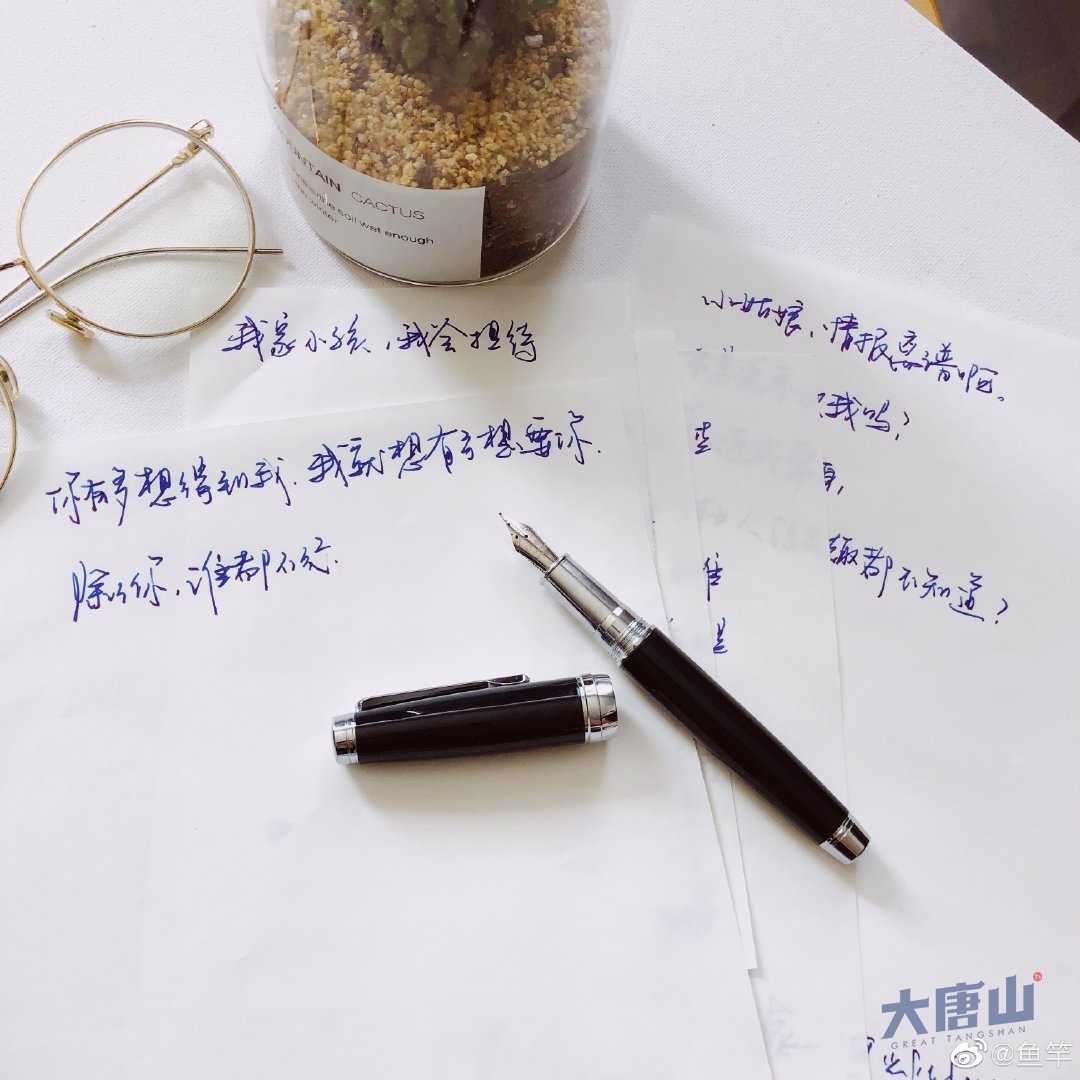 MOUNTAIN CACTUS
soil wet enough
winter
我家小孩，我会担待
你有多想得到我，我就想有多想要你.
除了你，谁都不完.
小姑娘，情报离谱啊。
我吗？
都不知道？
住
是
大唐山
GREAT TANGSHAN
@鱼竿